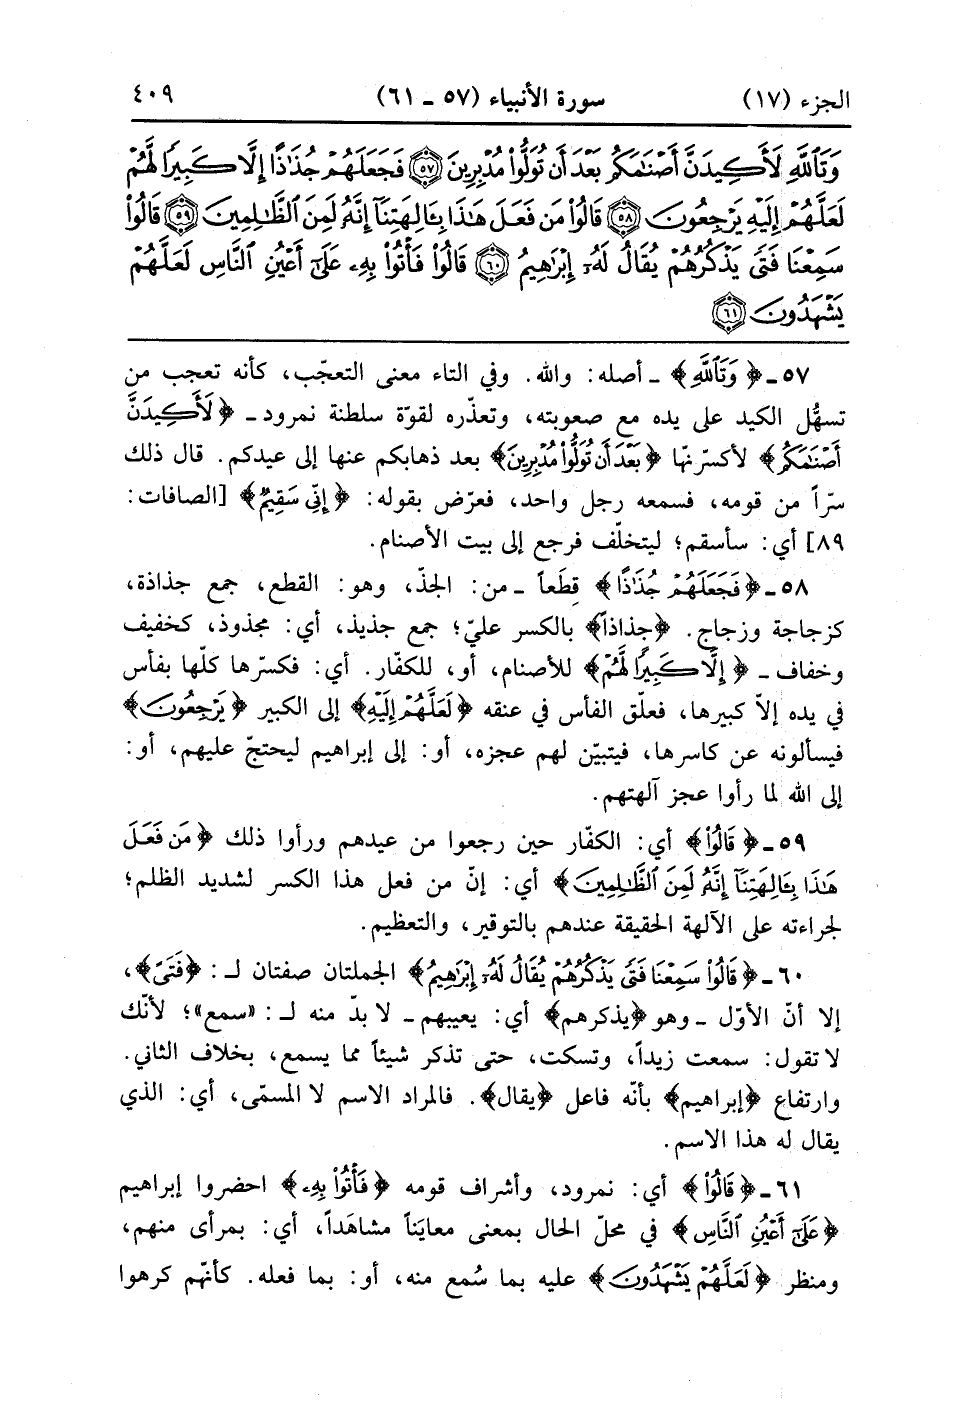 الجزء (١٧) سورة الأنبياء (٥٧ ـ ٦١) ٤٠٩
وَتَٱللَّهِ لَأَكِيدَنَّ أَصْنَٰمَكُم بَعْدَ أَن تُوَلُّوا۟ مُدْبِرِينَ ﴿٥٧﴾ فَجَعَلَهُمْ جُذَٰذًا إِلَّا كَبِيرًا لَّهُمْ
لَعَلَّهُمْ إِلَيْهِ يَرْجِعُونَ ﴿٥٨﴾ قَالُوا۟ مَن فَعَلَ هَٰذَا بِـَٔالِهَتِنَآ إِنَّهُۥ لَمِنَ ٱلظَّٰلِمِينَ ﴿٥٩﴾ قَالُوا۟
سَمِعْنَا فَتًى يَذْكُرُهُمْ يُقَالُ لَهُۥٓ إِبْرَٰهِيمُ ﴿٦٠﴾ قَالُوا۟ فَأْتُوا۟ بِهِۦ عَلَىٰٓ أَعْيُنِ ٱلنَّاسِ لَعَلَّهُمْ
يَشْهَدُونَ ﴿٦١﴾
٥٧ ـ ﴿وَتَٱللَّهِ﴾ ـ أصله: والله. وفي التاء معنى التعجّب، كأنه تعجب من
تسهُّل الكيد على يده مع صعوبته، وتعذّره لقوّة سلطنة نمرود ـ ﴿لَأَكِيدَنَّ
أَصْنَٰمَكُم﴾ لأكسرّنها ﴿بَعْدَ أَن تُوَلُّوا۟ مُدْبِرِينَ﴾ بعد ذهابكم عنها إلى عيدكم. قال ذلك
سرّاً من قومه، فسمعه رجل واحد، فعرّض بقوله: ﴿إِنِّي سَقِيمٌ﴾ [الصافات:
٨٩] أي: سأسقم؛ ليتخلّف فرجع إلى بيت الأصنام.
٥٨ ـ ﴿فَجَعَلَهُمْ جُذَٰذًا﴾ قِطَعاً ـ من: الجذّ، وهو: القطع، جمع جذاذة،
كزجاجة وزجاج. ﴿جِذاذاً﴾ بالكسر عليّ؛ جمع جذيذ، أي: مجذوذ، كخفيف
وخفاف ـ ﴿إِلَّا كَبِيرًا لَّهُمْ﴾ للأصنام، أو، للكفّار. أي: فكسرّها كلّها بفأس
في يده إلاّ كبيرها، فعلّق الفأس في عنقه ﴿لَعَلَّهُمْ إِلَيْهِ﴾ إلى الكبير ﴿يَرْجِعُونَ﴾
فيسألونه عن كاسرها، فيتبيّن لهم عجزه، أو: إلى إبراهيم ليحتجّ عليهم، أو:
إلى الله لما رأوا عجز آلهتهم.
٥٩ ـ ﴿قَالُوا۟﴾ أي: الكفّار حين رجعوا من عيدهم ورأوا ذلك ﴿مَن فَعَلَ
هَٰذَا بِـَٔالِهَتِنَآ إِنَّهُۥ لَمِنَ ٱلظَّٰلِمِينَ﴾ أي: إنّ من فعل هذا الكسر لشديد الظلم؛
لجراءته على الآلهة الحقيقة عندهم بالتوقير، والتعظيم.
٦٠ ـ ﴿قَالُوا۟ سَمِعْنَا فَتًى يَذْكُرُهُمْ يُقَالُ لَهُۥٓ إِبْرَٰهِيمُ﴾ الجملتان صفتان لـ: ﴿فَتًى﴾،
إلا أنّ الأوّل ـ وهو ﴿يذكرهم﴾ أي: يعيبهم ـ لا بدّ منه لـ: «سمع»؛ لأنّك
لا تقول: سمعت زيداً، وتسكت، حتى تذكر شيئاً مما يسمع، بخلاف الثاني.
وارتفاع ﴿إبراهيم﴾ بأنّه فاعل ﴿يقال﴾. فالمراد الاسم لا المسمّى، أي: الذي
يقال له هذا الاسم.
٦١ ـ ﴿قَالُوا۟﴾ أي: نمرود، وأشراف قومه ﴿فَأْتُوا۟ بِهِۦ﴾ احضروا إبراهيم
﴿عَلَىٰٓ أَعْيُنِ ٱلنَّاسِ﴾ في محلّ الحال بمعنى معايَناً مشاهَداً، أي: بمرأى منهم،
ومنظر ﴿لَعَلَّهُمْ يَشْهَدُونَ﴾ عليه بما سُمع منه، أو: بما فعله. كأنّهم كرهوا